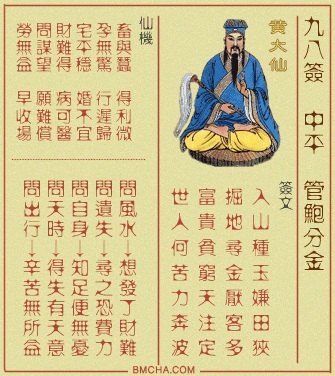 九八簽 中平 管鮑分金
黃大仙
簽文
入山種玉嫌田狹
掘地尋金厭客多
富貴貧窮天注定
世人何苦力奔波
仙機
畜與蠶 得利微
孕無驚 行遲歸
宅平穩 婚不宜
財難得 病可醫
問謀望 願難償
勞無益 早收場
問風水→想發了財難
問遺失→尋之恐費力
問自身→知足便無憂
問天時→得失有天意
問出行→辛苦無所益
BMCHA.COM